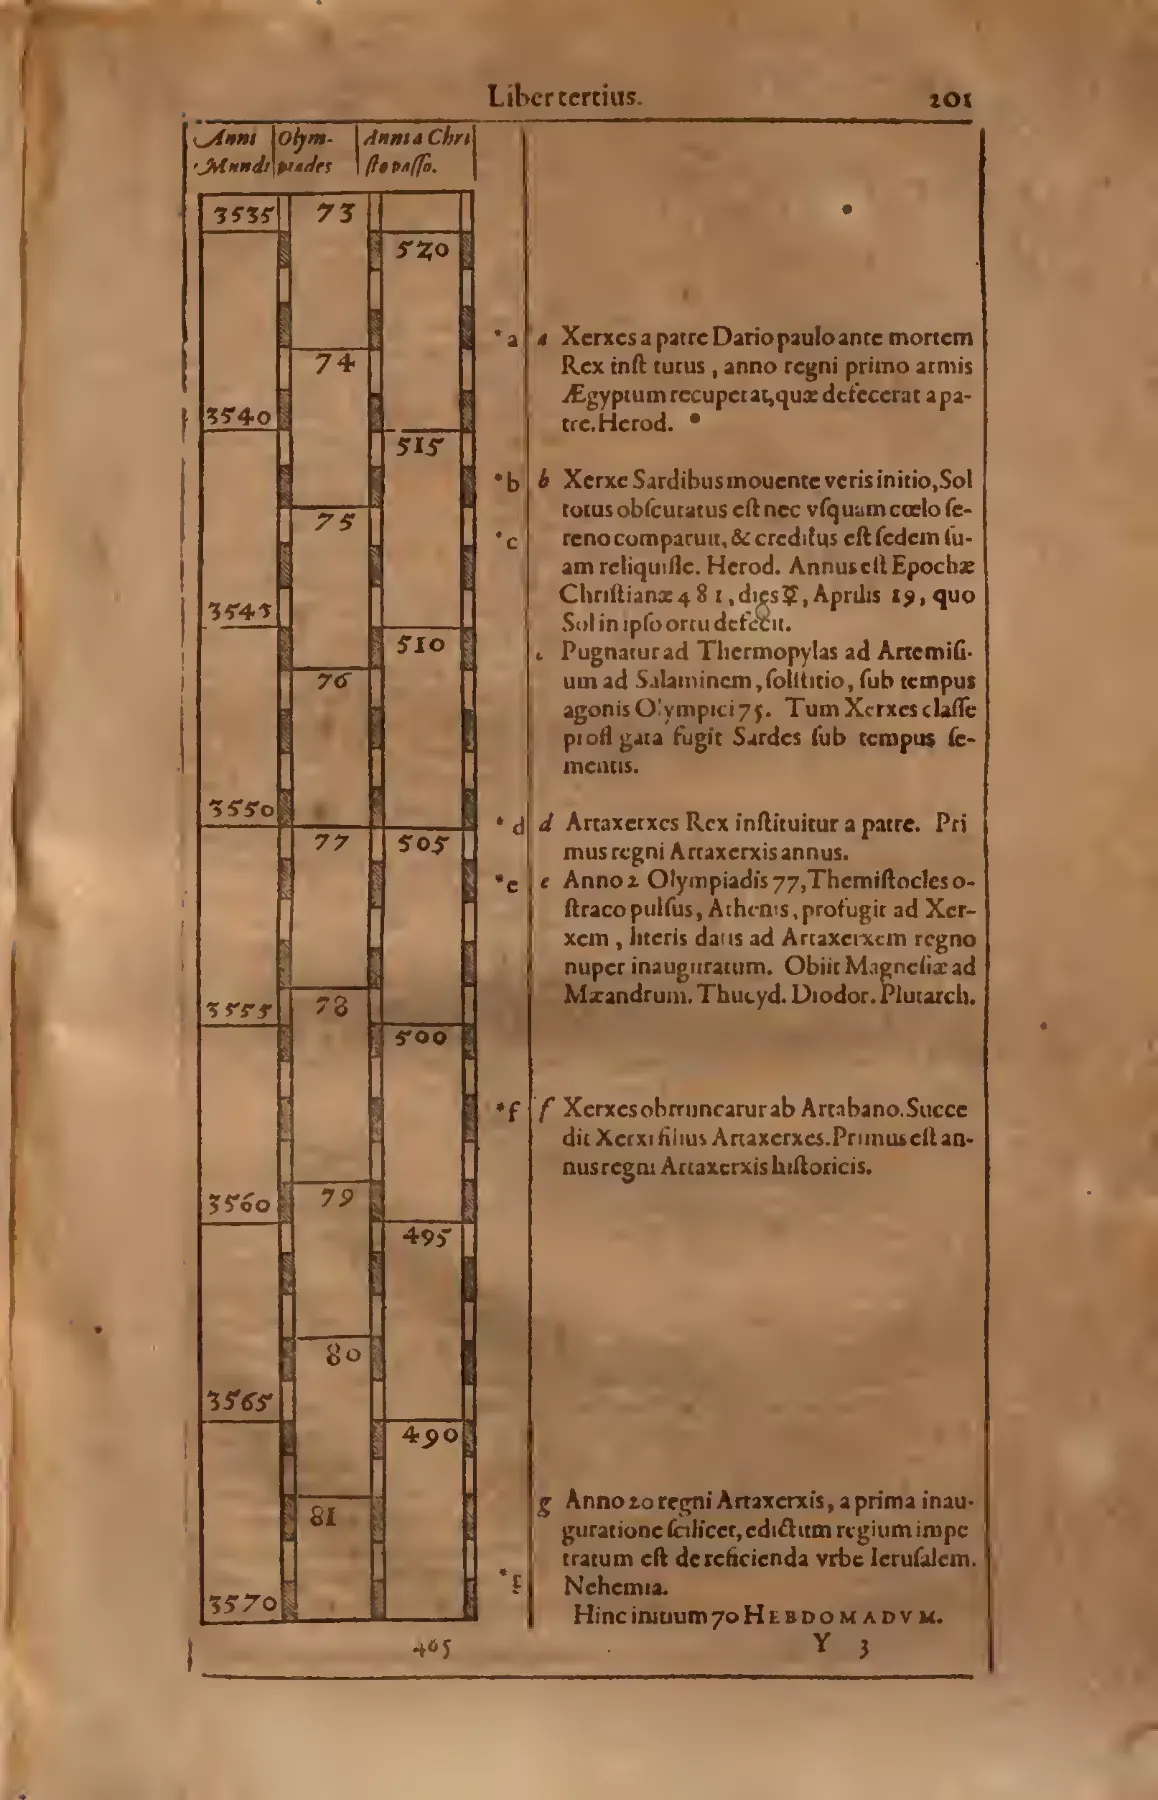 Liber tertius. 201
Anni Mundi
Olympiades
Anni a Christo passo.
3535 73
520
74
3540
515
75
3545
510
76
3550
77 505
3555 78
500
3560 79
495
80
3565
490
81
3570
*a a Xerxes a patre Dario paulo ante mortem
Rex inſt tutus, anno regni primo armis
Ægyptum recuperat, quæ defecerat a pa-
tre. Herod.
*b b Xerxe Sardibus mouente veris initio, Sol
totus obſcuratus eſt nec vſquam cœlo ſe-
*c reno comparuit, & creditus eſt ſedem ſu-
am reliquiſſe. Herod. Annus eſt Epochæ
Chriſtianæ 481, dies ☿, Aprilis 19, quo
Sol in ipſo ortu defecit.
c Pugnatur ad Thermopylas ad Artemiſi-
um ad Salaminem, ſolſtitio, ſub tempus
agonis Olympici 75. Tum Xerxes claſſe
profl gata fugit Sardes ſub tempus ſe-
mentis.
*d d Artaxerxes Rex inſtituitur a patre. Pri
mus regni Artaxerxis annus.
*e e Anno 2 Olympiadis 77, Themiſtocles o-
ſtraco pulſus, Athenis, profugit ad Xer-
xem, literis datis ad Artaxerxem regno
nuper inauguratum. Obiit Magneſiæ ad
Mæandrum. Thucyd. Diodor. Plutarch.
*f f Xerxes obtruncatur ab Artabano. Succe
dit Xerxi filius Artaxerxes. Primus eſt an-
nus regni Artaxerxis hiſtoricis.
g Anno 20 regni Artaxerxis, a prima inau-
guratione ſcilicet, edictum regium impe
tratum eſt de reficienda vrbe Ieruſalem.
Nehemia.
Hinc initium 70 HEBDOMADVM.
465 Y 3